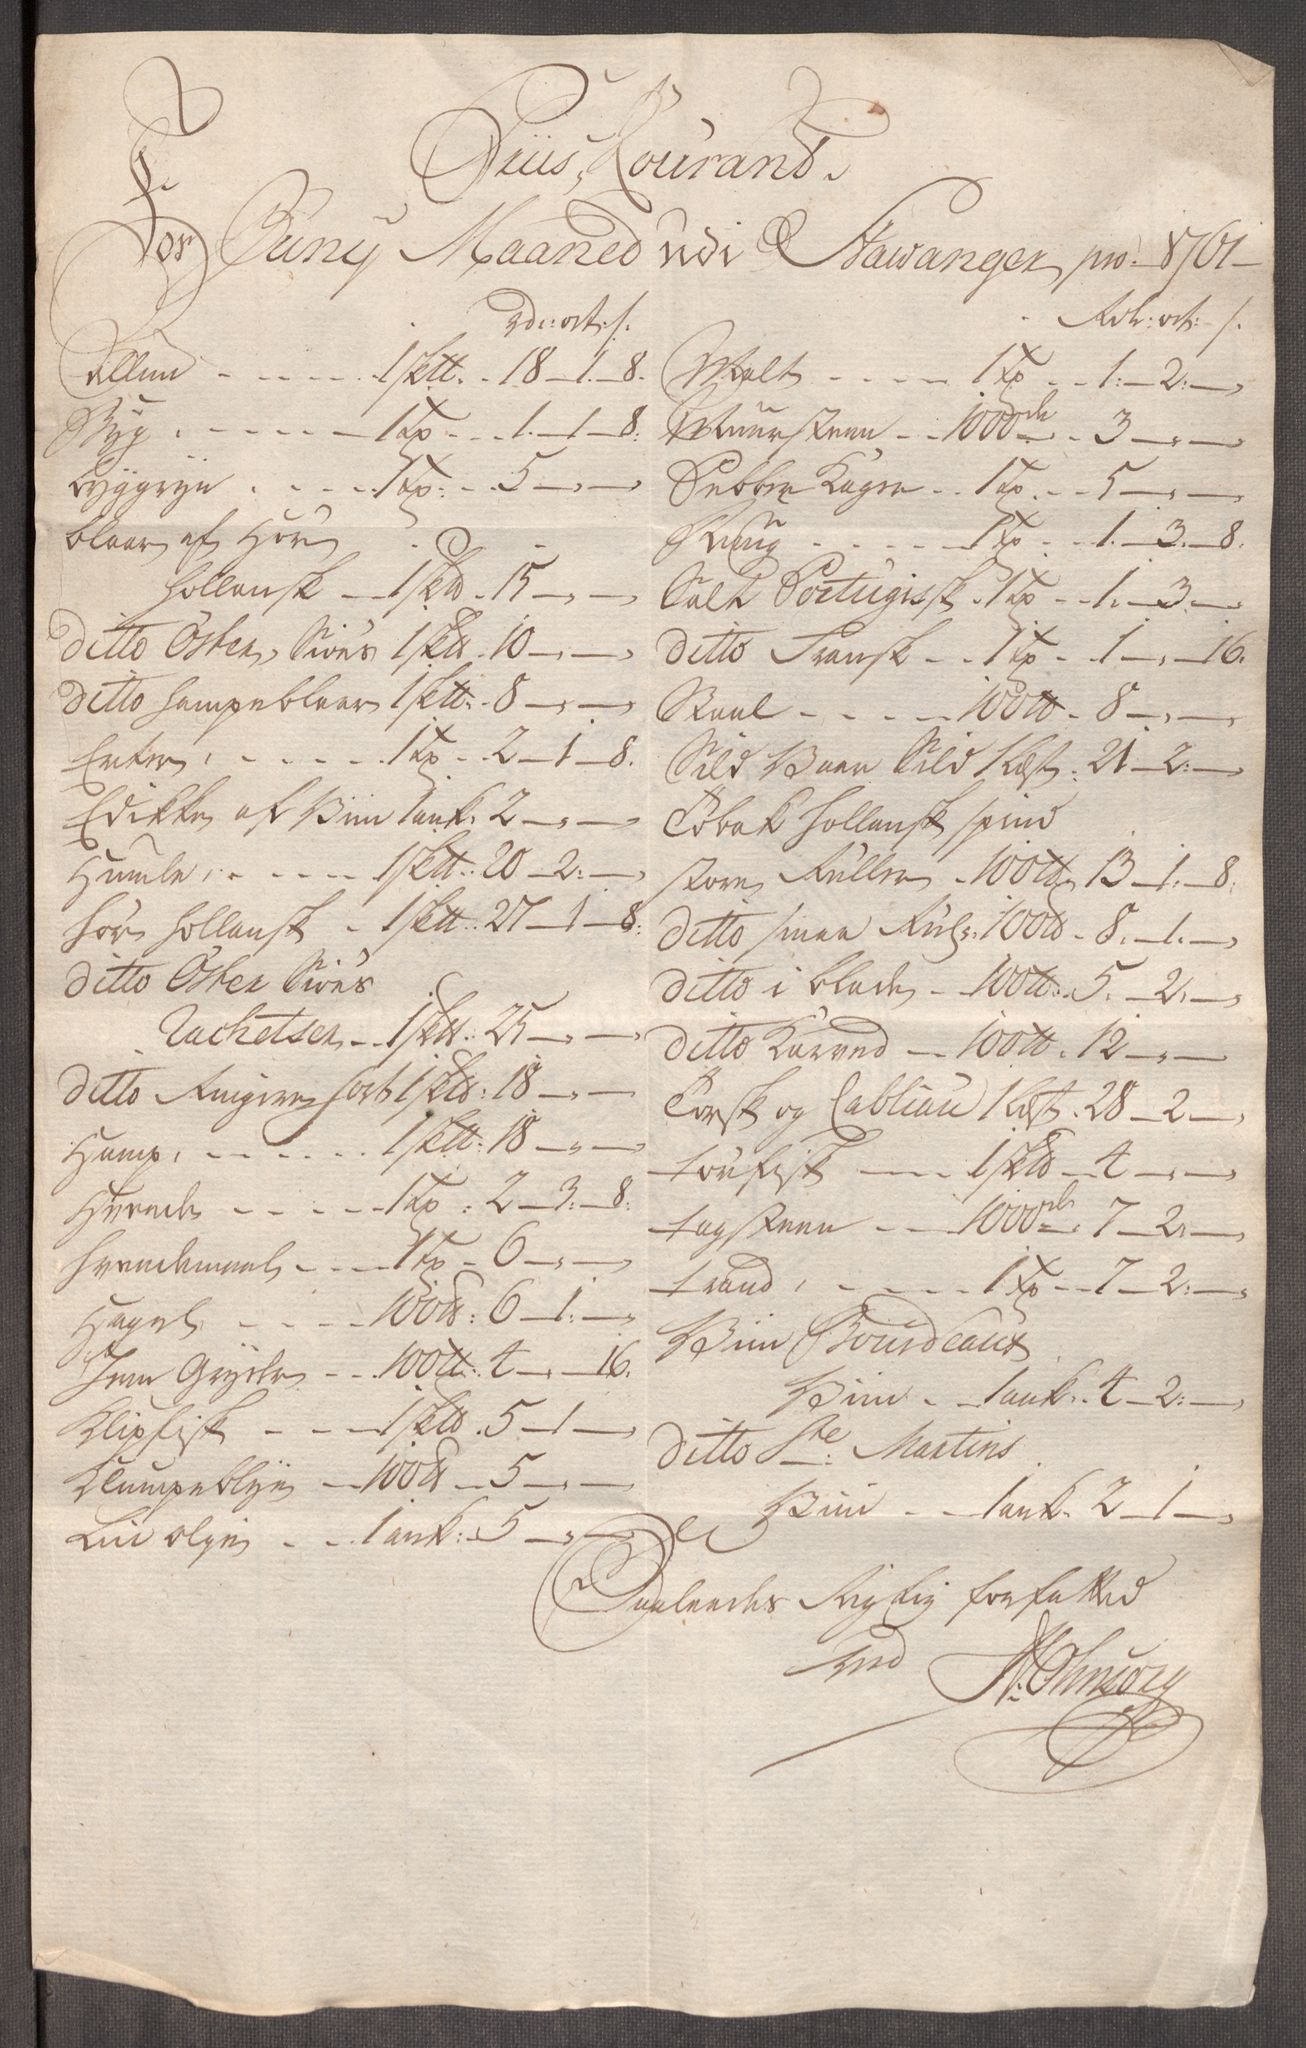 Priis, Courand.
For Juny Maaned udi Stawanger pro. 1761
rdr: ort: s.
Allun 1 sktt. 18 - 1 - 8.
Byg 1 tp 1 - 1 - 8:
byggryn 1 tp: 5
blaar af Hør
hollansk 1 sktt. 15
ditto Øster Siøes 1 sktt 10
ditto hampeblaar 1 sktt. 8
Erter 1 tp 2 - 1 - 8.
Edikke af Viin 1 ank. 2
Humle 1 sktt. 20 - 2:
hør hollansk 1 sktt. 27 - 1 - 8:
ditto Øster Siøes
Rachetser 1 sktt. 25
ditto Ringere sort 1 sktt: 18
Hamp 1 sktt: 18
Hvede 1 tp: 2 - 3 - 8:
hvedemeel 1 tp 6
Hagel 100 tt: 6 - 1:
Jern Gryder 100 tt: 4 - 16.
Klipfisk 1 sktt. 5 - 1
Klumpeblye 100 tt 5
Lin olye 1 ank: 5
Rdr: ort: s.
Malt 1 tp 1: - 2:
Muursteen 1000de 3
Pebber Kager 1 tp 5
Ruug 1 tp 1. - 3. - 8.
Salt Portugisk 1 tp 1. - 3.
ditto Fransk 1 tp 1 - 16.
Staal 100 tt. 8
Sild Vaar Sild 1 Lest: 21 - 2:
Tobak hollansk spind
store Ruller 100 tt 13 - 1: - 8:
ditto smaa Rul: 100 tt. 8. - 1.
ditto i blade 100 tt. 5. - 2.
ditto Karved 100 tt. 12
Torsk og Cabliau 1 Lest. 28 - 2
törfisk 1 sktt 4
tagsteen 1000de 7 - 2
trand 1 tp 7 - 2:
Viin Bourdeaux
Viin 1 ank. 4 - 2:
ditto Ste: Martins
Viin 1 ank. 2 - 1
Saaledes Rigtig forfatted
ved